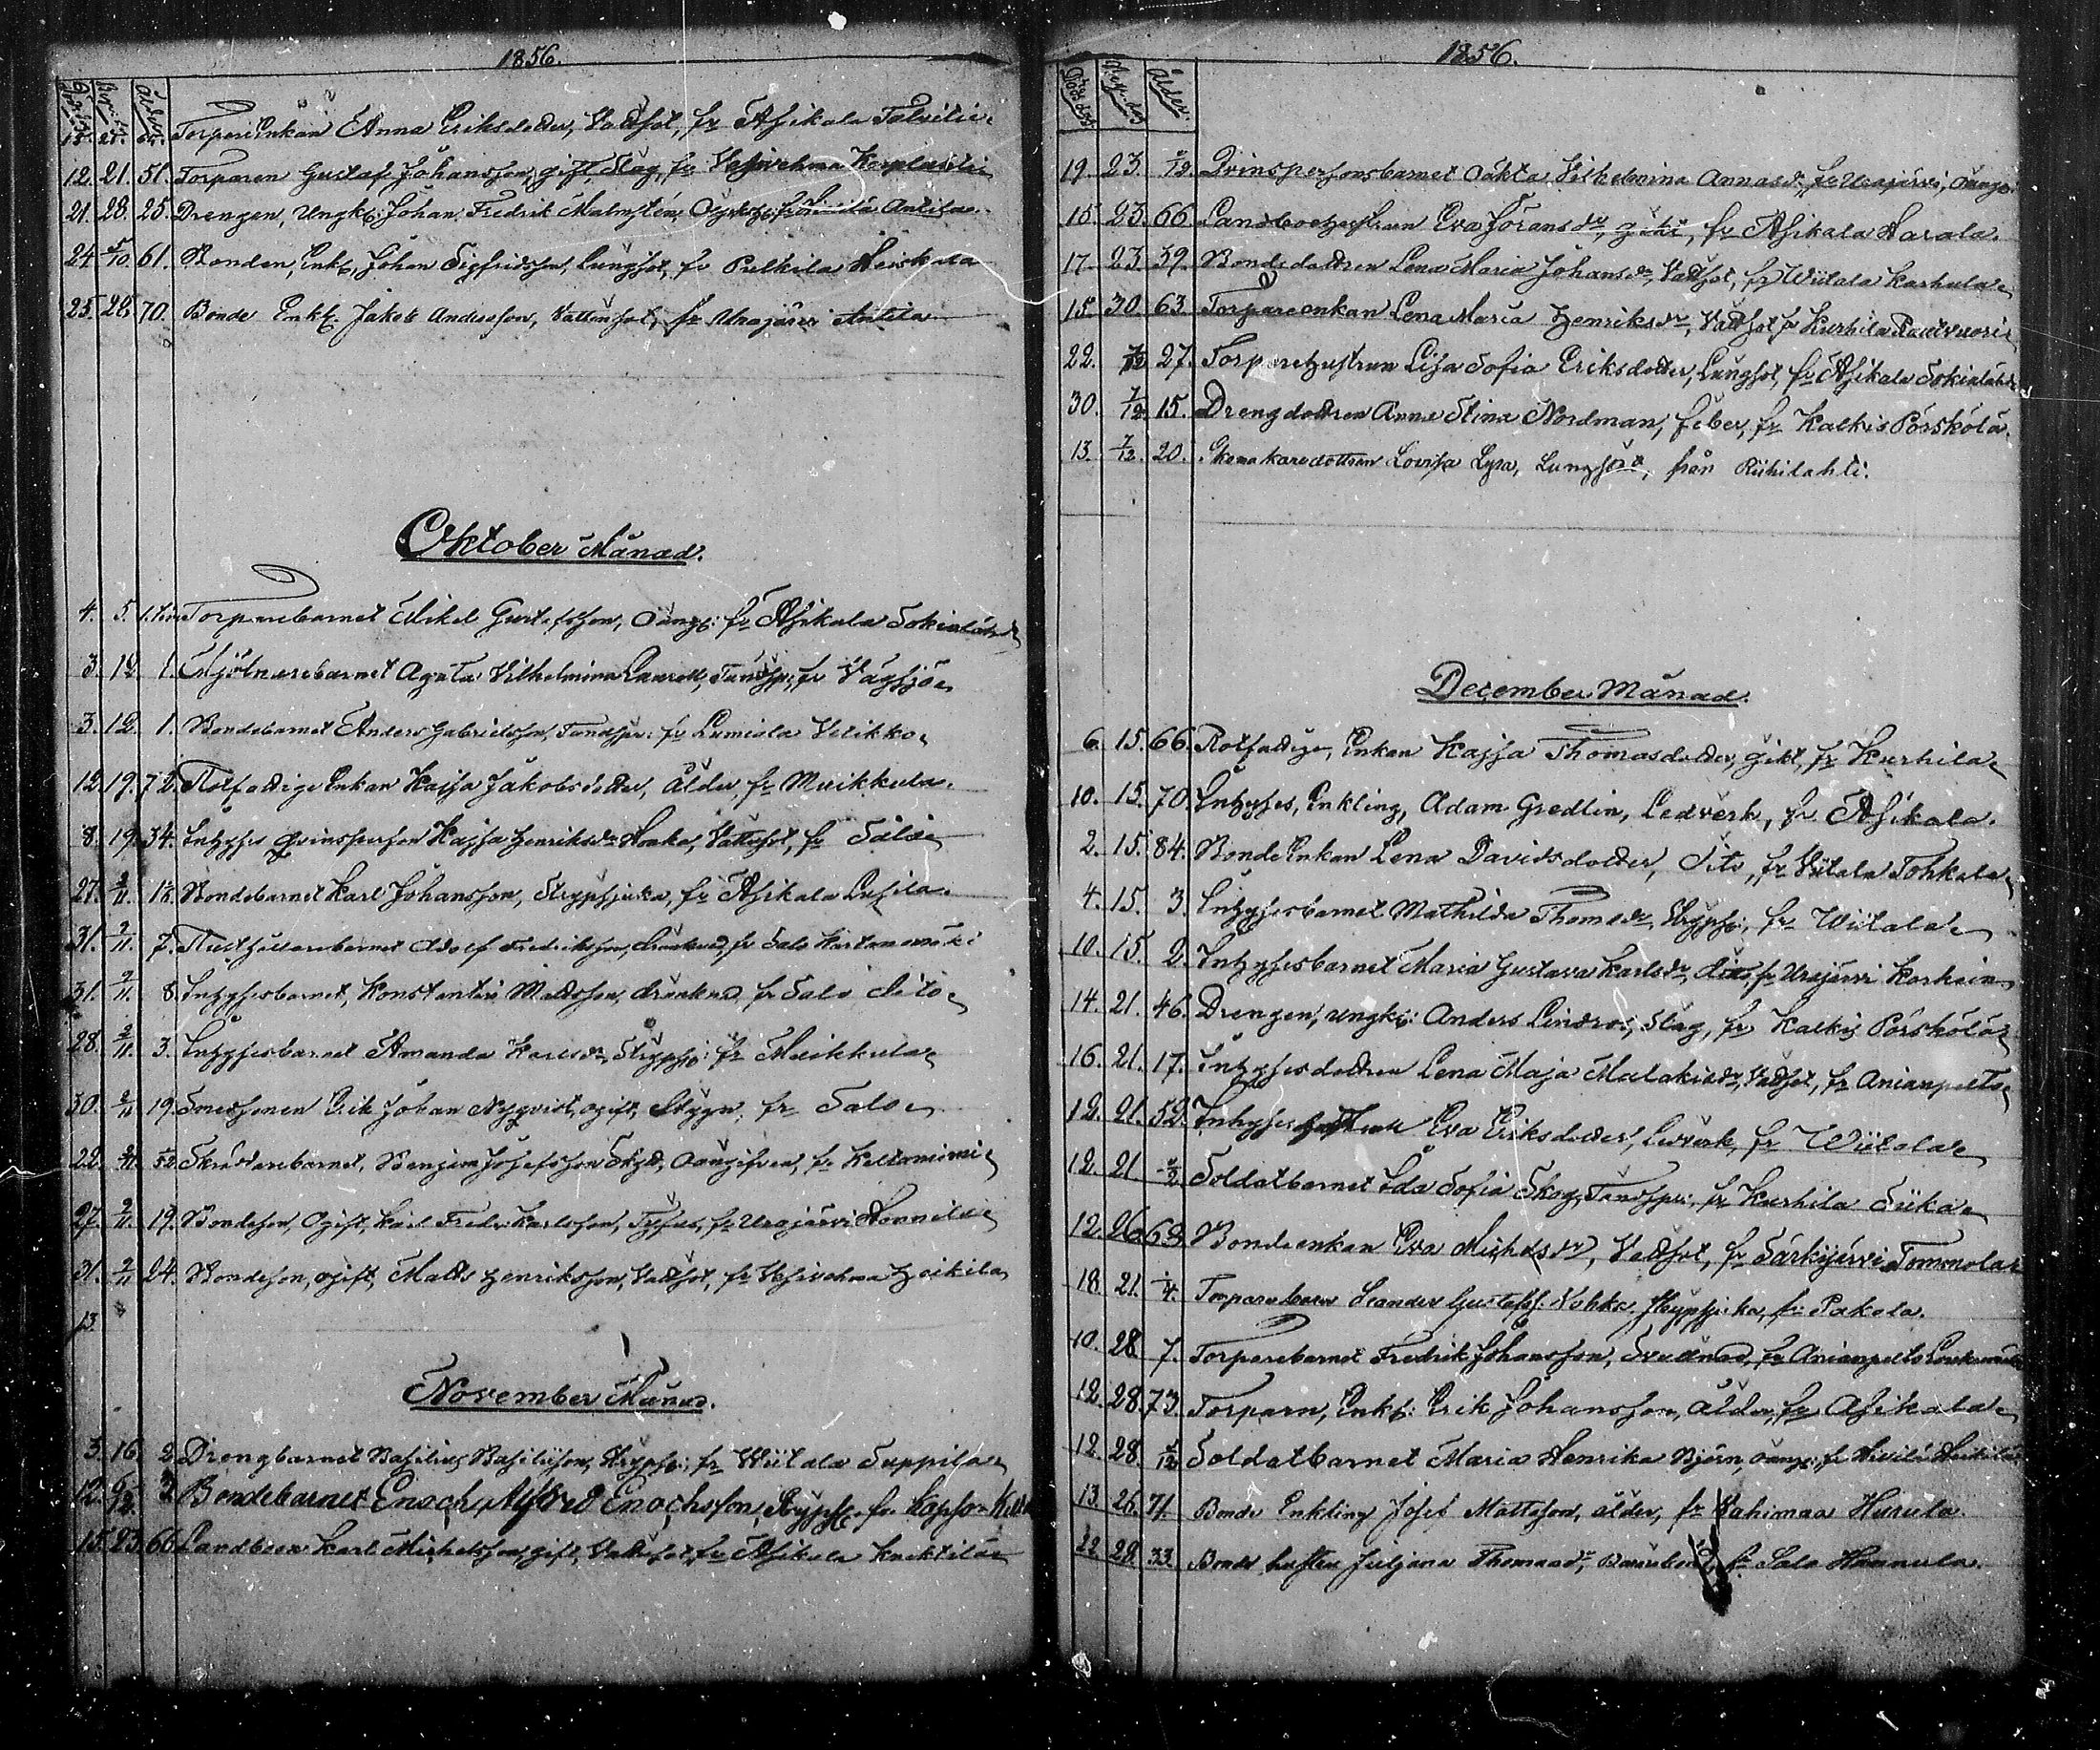 1856.
Ålder
15. 21. Torpare Enkan Anna Eriksdotter, Vattsot, fr Asikala Talvitie.
12. 21. 51. Torparen Gustaf Johansson, gift, Slag, fr Vesivehma
21. 28. 25. Drengen, Ungk: Johan Fredrik Malmstén, Anttila
24 5/10 61. Bonden, Enkl, Johan Sigfridsson, Lungsot, fr Pulkkila Heiskala
25. 28. 70. Bonde Enkl. Jakob Andersson, Vattensot, fr Urajärvi Anttila
Oktober Månad.
4. 5. Torparebarnet Mikel Gustafsson, Oång: fr Asikala
3. 12. 1. Mjölnarebarnet Agata Vilhelmina Laurell, Tandspr, fr Vägsjö
3. 12. 1. Bondebarnet Anders Gabrielsson, Tandspr: fr Lumiala Veikko
12 19. 72. Rotfattige Enkan Kajsa Jakobsdotter, ålder, fr Muikkula.
8. 19. 34. Inhyses Qvinsperson Kajsa Henriksdr Vattusot, fr Salo
27. 2/11. Bondebarnet Karl Johansson, Strypsjuka, fr Asikala
31. 2/11. 7. Rusthållarebarnet Adolf Fredriksson, drunknad, fr Salo
31. 2/11. 8. Inhysesbarnet, Konstantin Mattsson, drunknad, fr Salo dito
28. 2/11. 3. Inhysesbarnet Amanda Karlsdr, Strypsj: fr Muikkula
30. 2/11 19. Smedsonen Erik Johan Nyqvist, ogift, Stygn, fr Salo
22. 2/11. Skräddarebarnet, Benjam Josefsson Oångifven, fr Keltaniemi
27. 2/11. 19. Bondeson, Ogift, Karl Fredr: Karlsson, Tyfus, fr Urajärvi Hannila
31. 2/11 24. Bondeson, ogift, Matts Henriksson, Vattsot, fr Vesivehma Heikila
13.
November Månad.
3. 16. 2 Drengbarnet Basilius Basiliison, Strypsj: fr Wiitala Seppilä
12. Bondebarnet Enoch Alfred Enochsson, Strypsj. fr
15. 23. 66 Landbon Karl Michelsson gift, Vattusot, fr Asikala Knuktila
1856.
Ålder.
19. 23. Qvinspersonsbarnet oäkta Vilhelmina Annasdr, fr Urajärvi, Oångif:
15. 23. 66. Landbohustrun Eva Göransdr, gikt, fr Asikala Harala.
17. 23. 39. Bondedottren Lena Maria Johansdr, Vattsot, fr Wiitala Karhula
15. 30. 63. Torpareenkan Lena Maria Henriksdr, Vattsot fr Kurhila Rautvuori
22. 7/12 27. Torparehustrun Lisa Sofia Eriksdotter, Lungsot, fr Asikala
30. 7/12. 15. Drengdottren Anna Stina Nordman, feber, fr Kalkis Pörskölä.
13. 7/12. 20. Skomakaredottren Lovisa Lyra, Lungsot, från Riihilahti.
December Månad.
6. 15. 66. Rotfattige, Enkan Kajsa Thomasdotter, gikt, fr Kurhila
10. 15. 70. Inhyses, Enkling, Adam Gredlin, Ledverk, fr Asikala.
2. 15. 84. Bonde Enkan Lena Davidsdotter, Dito, fr Wiitala Tohkala
4. 15. 3. Inhysesbarnet Mathilda Thomasdr, Strypsj, fr Wiitala
10. 15. 2. Inhysesbarnet Maria Gustava Karlsdr, dito, fr Urajärvi
14. 21. 46. Drengen, ungk: Anders Lindros, Slag, fr Kalkis Pörskölä
16. 21. 17. Inhysesdottren Lena Maja Malakiasdr, Vattsot, fr Anianpelto
12. 21. 52. Inhyses hustrun Eva Eriksdotter, Ledverk, fr Wiitola
12. 21. Soldatbarnet Ida Sofia Skog, Tandspr: fr Kurhila Siika
12. 26. Bondeenkan Eva Michelsdr, Vattsot, fr Särkijärvi Tommola
18. 21. 1/4. Torparebarn Leander Gustafss. Strypsjuka, fr Pakola.
10. 28 7. Torparebarnet Fredrik Johansson, Svullnad, fr Anianpelto
12. 28. 73. Torparn, Enkl: Erik Johansson, ålder, fr Asikala
12. 28. Soldatbarnet Maria Henrika Björn, oång: fr
13. 26. 71. Bonde Enkling Josef Mattsson, ålder, fr Kahimaa
22 28. 33. Bonde hustru Juljana Thomasdr, Barnsbörd, fr Salo Hannula.